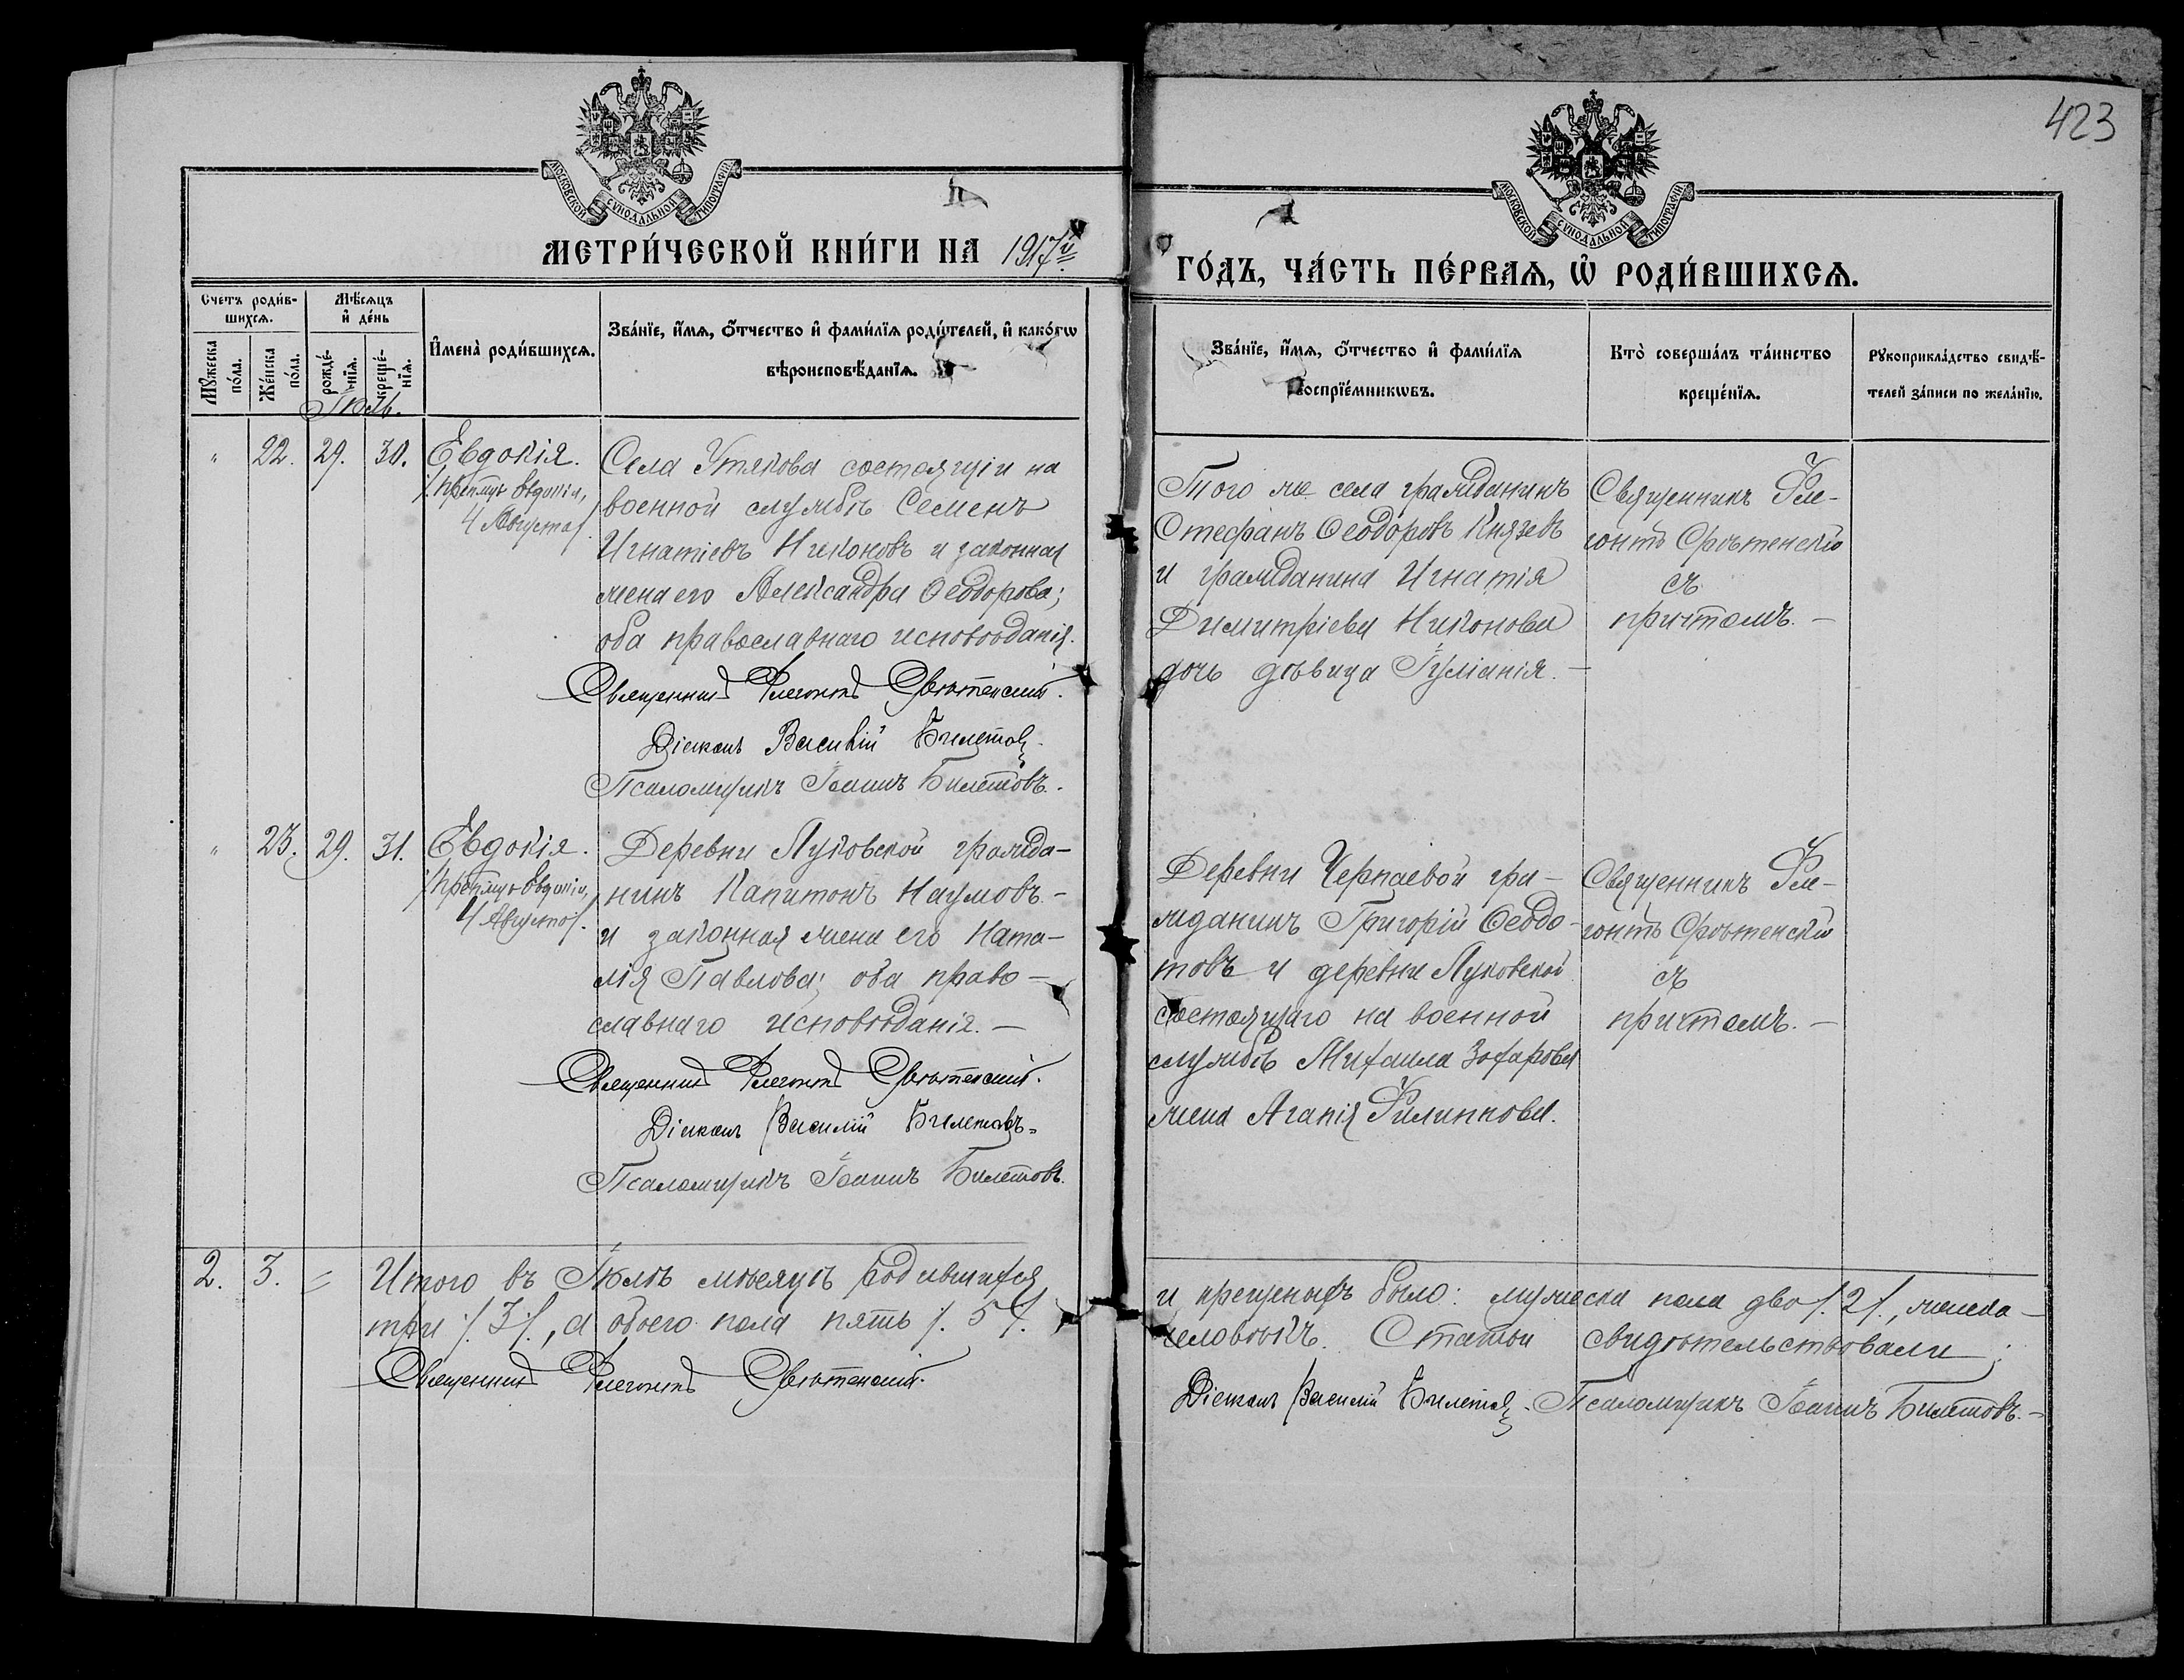 423
МОСКОВСКОЙ СУНОДАЛЬНОЙ ТИПОГРАФІИ
МОСКОВСКОЙ СУНОДАЛЬНОЙ ТИПОГРАФІИ
МЕТРИ́ЧЕСКОЙ КНИ́ГИ НА 1917й
ГО́ДЪ, ЧА́СТЬ ПЕ́РВАѦ, Ѡ РОДИ́ВШИХСѦ.
Счетъ роди́в-
шихсѧ.
Мѣ́сѧцъ
и҆ де́нь
Мꙋ́жеска
по́ла.
Же́нска
по́ла.
рожде́-
нїѧ.
креще́-
нїѧ.
И҆мена̀ роди́вшихсѧ.
Зва́нїе, и҆́мѧ, ѻ҆́тчество и҆ фами́лїѧ роди́телей, и҆ како́гѡ
вѣроисповѣ́данїѧ.
Зва́нїе, и҆́мѧ, ѻ҆́тчество и҆ фами́лїѧ
воспрїе́мникѡвъ.
Кто̀ соверша́лъ та́инство
креще́нїѧ.
Рꙋкоприкла́дство свидѣ́-
телей за́писи по жела́нїю.
Іюль.
" 22. 29. 30. Евдокія.
Препмуч Евдокіи,
4 Августа
Села Утякова состоящій на
военной службѣ Семенъ
Игнатіевъ Никоновъ и законная
жена его Александра Ѳеодорова;
оба православнаго исповѣданія.
Священникъ Флегонтъ Срѣтенскій.
Діаконъ Василій Билетовъ.
Псаломщикъ Іоаннъ Билетовъ.
Того же села гражданинъ
Стефанъ Ѳеодоровъ Князевъ
и гражданина Игнатія
Димитріева Никонова
дочь дѣвица Іуліанія.
Священникъ Фле-
гонтъ Срѣтенскій
съ
причтомъ. —
" 23. 29. 31. Евдокія.
Препмуч Евдокіи,
4 Августа
Деревни Луковской гражда-
нинъ Капитонъ Наумовъ
и законная жена его Ната-
лія Павлова; оба право-
славнаго исповѣданія. —
Священникъ Флегонтъ Срѣтенскій.
Діаконъ Василій Билетовъ.
Псаломщикъ Іоаннъ Билетовъ.
Деревни Черпаевой гра-
жданинъ Григорій Ѳеодо-
товъ и деревни Луковской
состоящаго на военной
службѣ Михаила Захарова
жена Агапія Филиппова.
Священникъ Фле-
гонтъ Срѣтенскій
съ
причтомъ. —
2. 3. = Итого въ Іюлѣ мѣсяцѣ родившихся
и крещеныхъ было: мужеска пола два /. 2 /., женска —
три /. 3 /., а обоего пола пять /. 5 /.
человѣкъ. Статьи свидѣтельствовали:
Священникъ Флегонтъ Срѣтенскій.
Діаконъ Василій Билетовъ. Псаломщикъ Іоаннъ Билетовъ. —